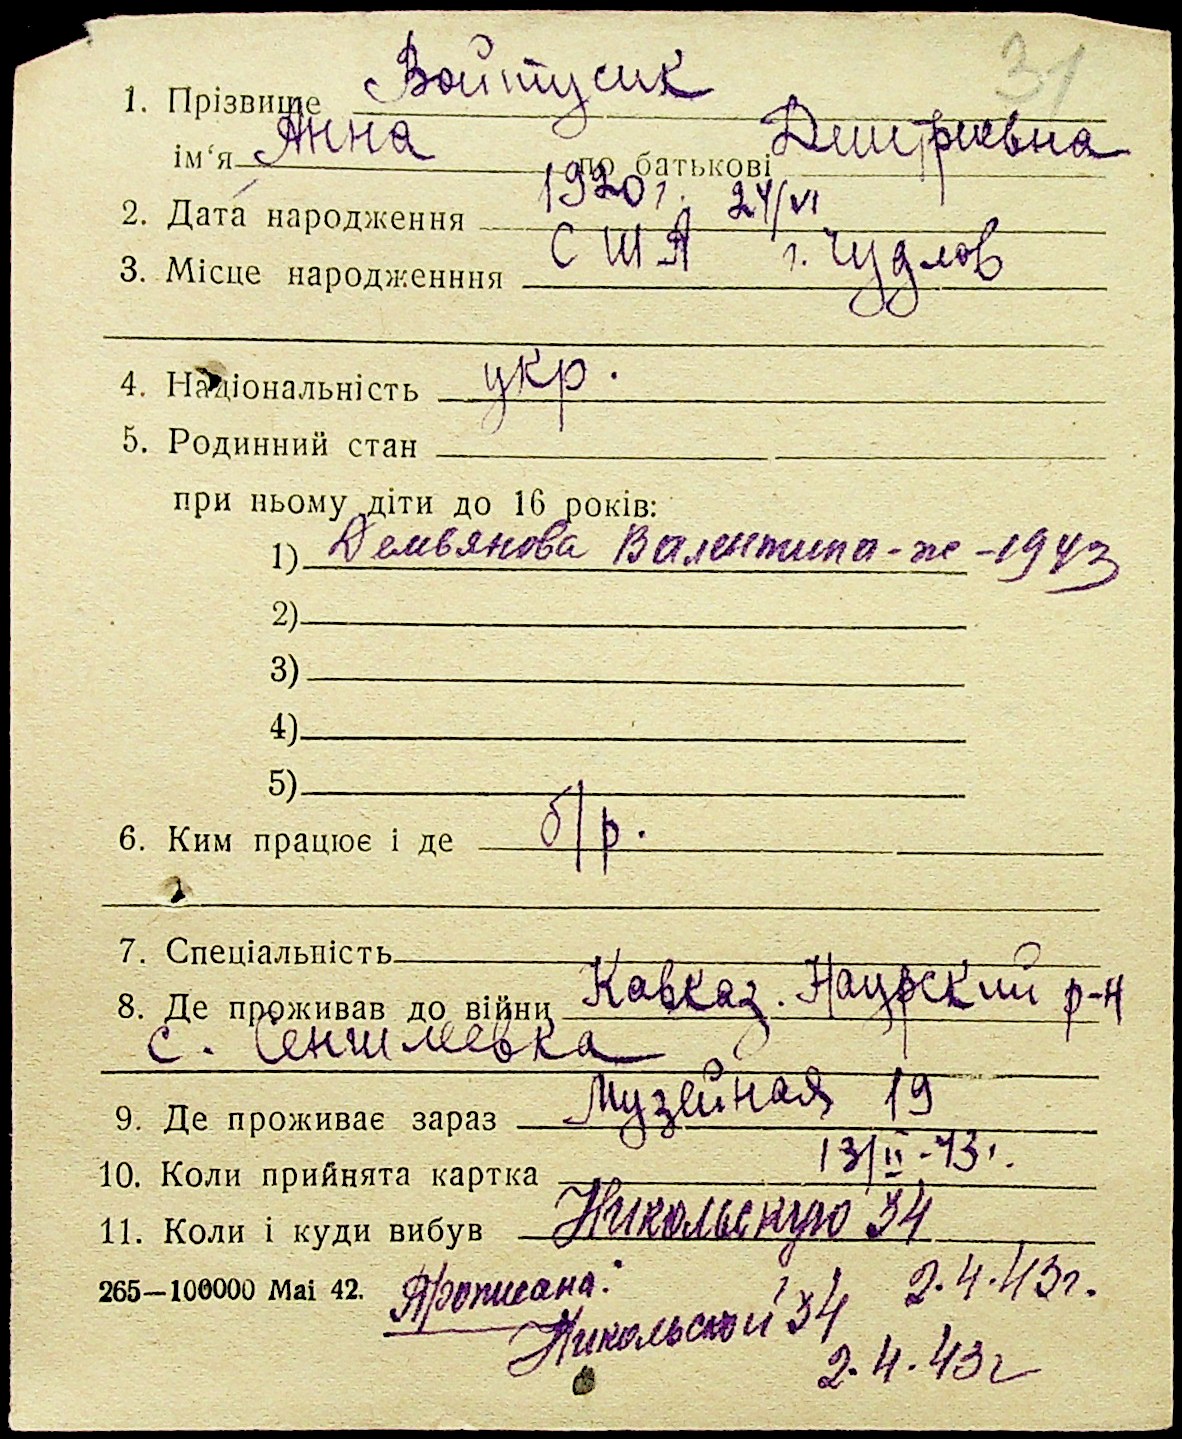 31
1. Прізвище Войтусик
ім'я Анна по батькові Дмитриевна
2. Дата народження 1920 г. 24/VI
3. Місце народженння США г. Чудлов
4. Національність укр.
5. Родинний стан
при ньому діти до 16 років:
1) Демьянова Валентина - ж - 1943
2)
3)
4)
5)
6. Ким працює і де б/р.
7. Спеціальність
8. Де проживав до війни Кавказ. Наурский р-н
с. Сенгилеевка
9. Де проживає зараз Музейная 19
10. Коли прийнята картка 13/II-43 г.
11. Коли і куди вибув Никольскую 34
265—100000 Mai 42. Прописана: 2.4.43г.
Никольской 34
2.4.43г